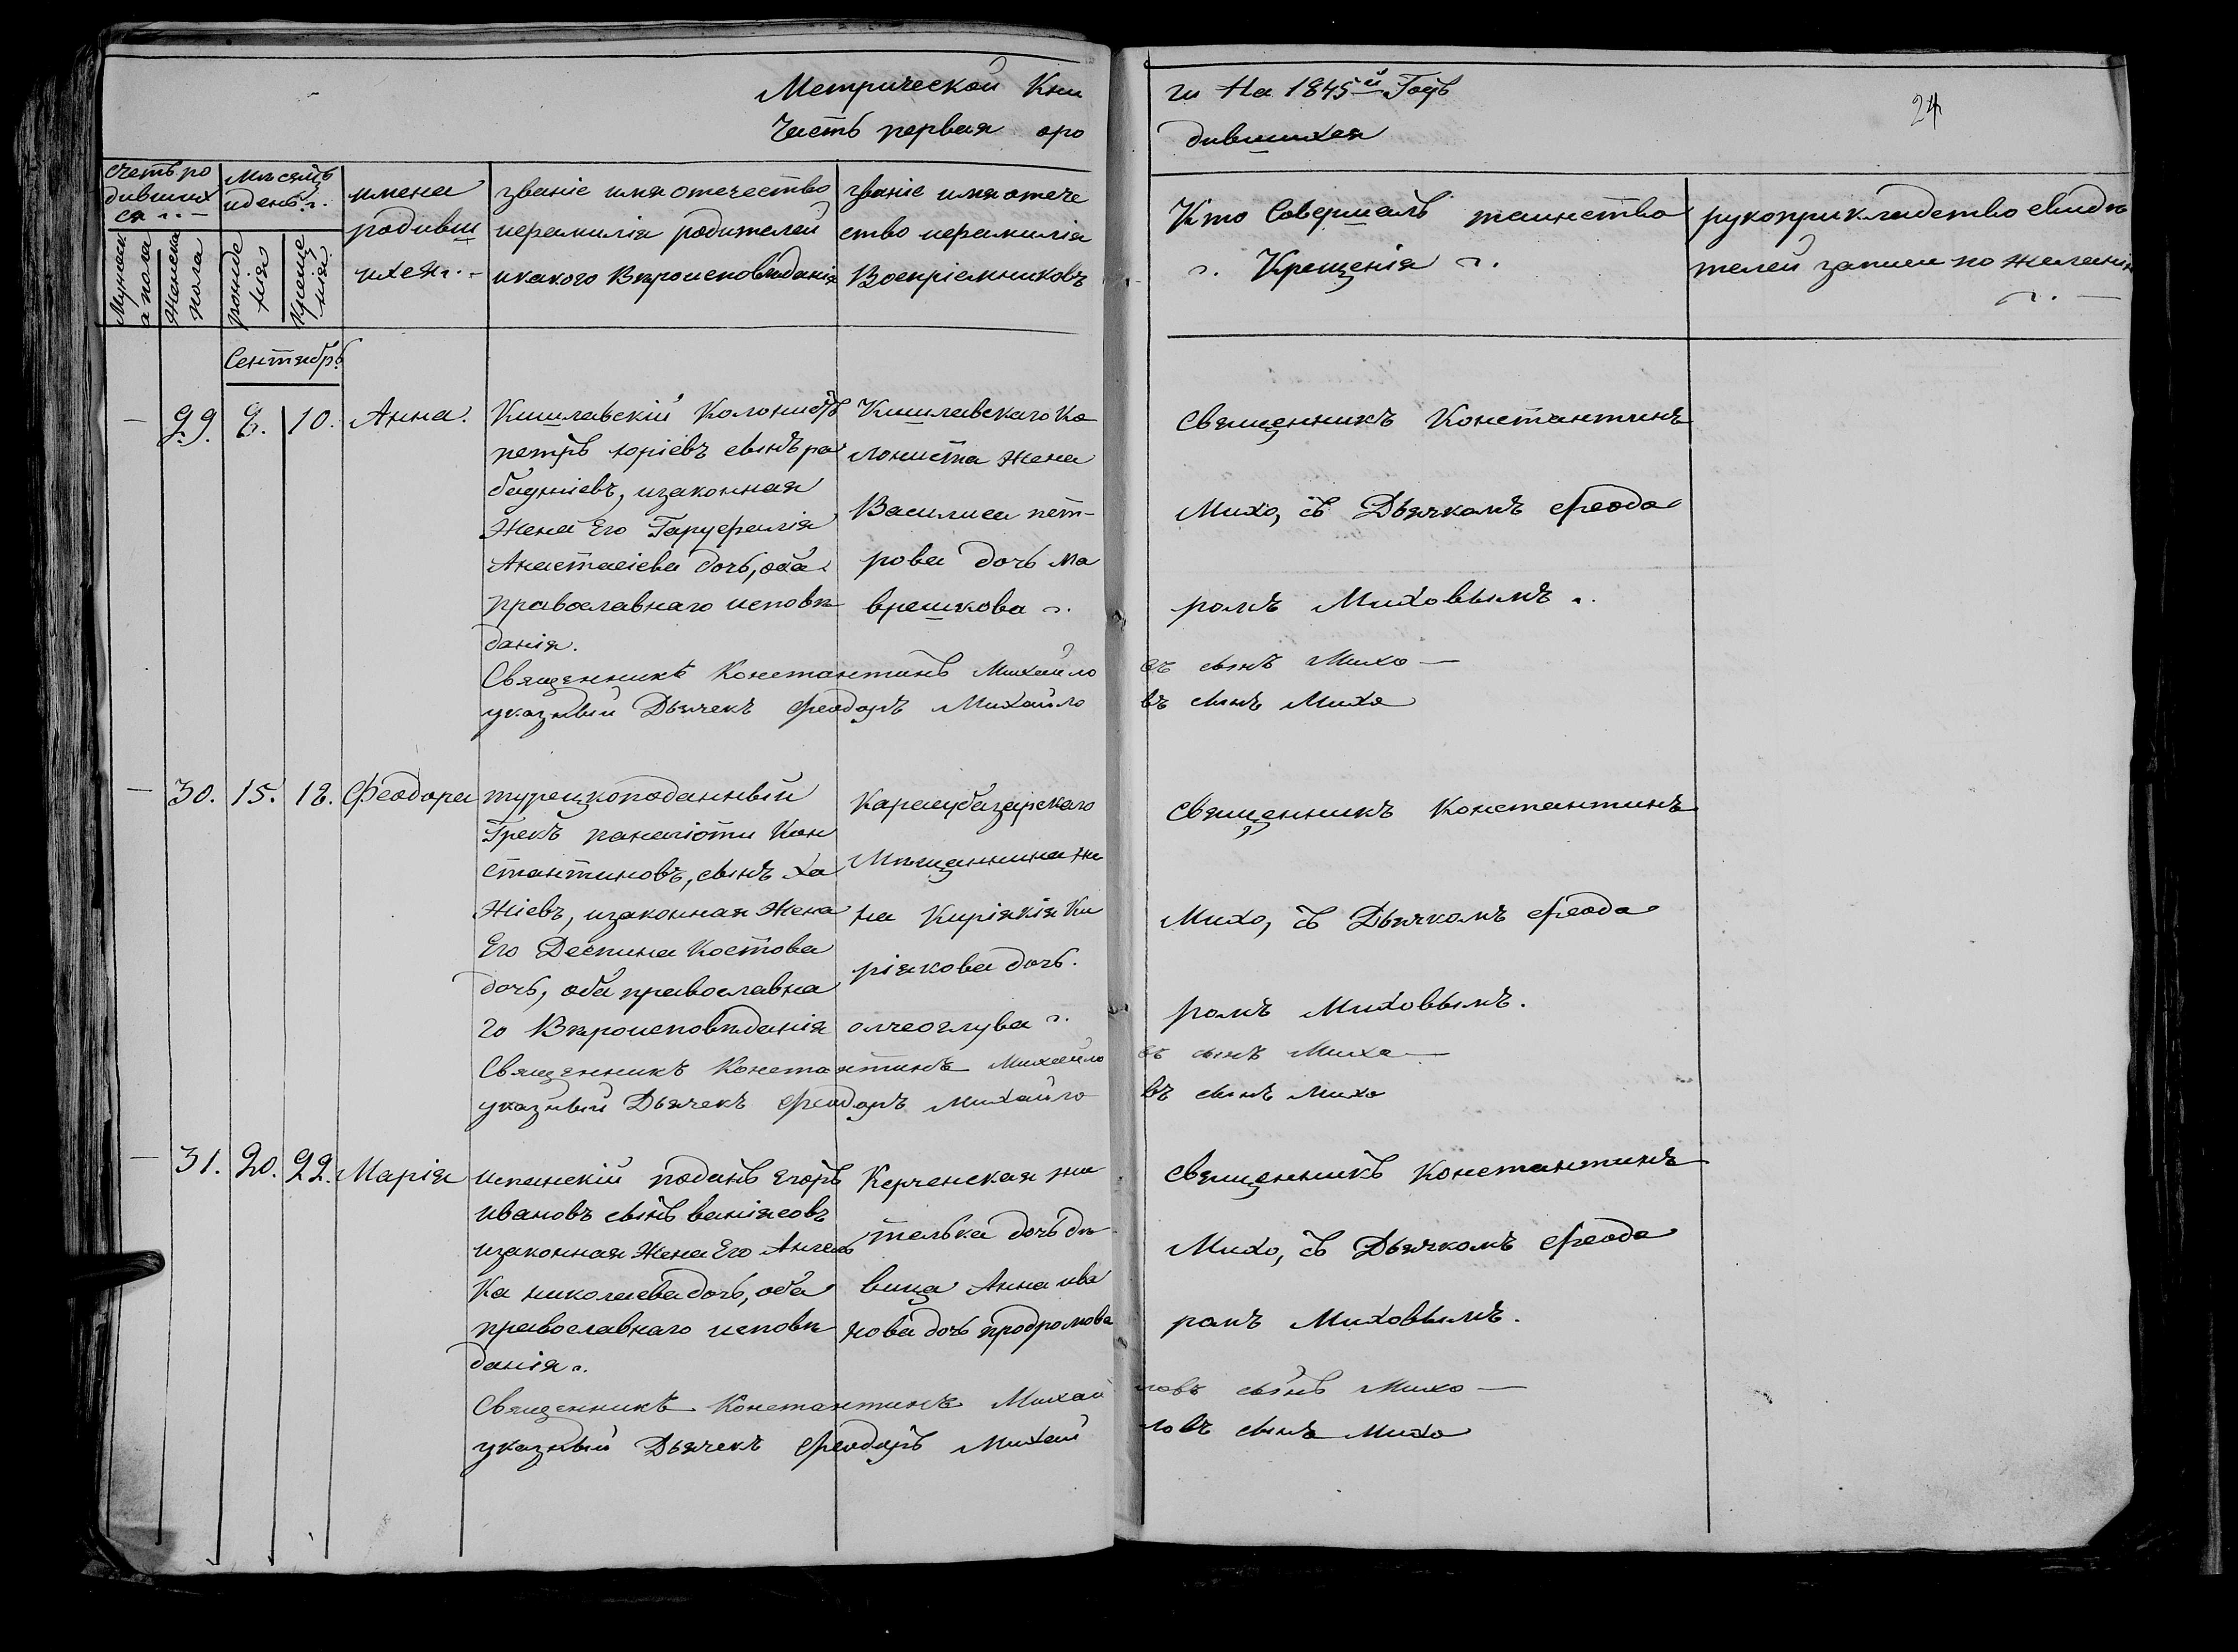 Метрической Кни
ги На 1845й Годъ
24
Часть первая оро
дившихся
счетъ ро
дивших
ся
Мѣсяцъ
и день
имена
родивш
ихся
званіе имя отечество
ифамилія родителей
икакого Вѣроисповѣданія
званіе имя отече
ство ифамилія
Воспріемниковъ
Кто Совершалъ таинство
Крещенія
рукоприкладство свидѣ
телей записи по желанію
Мужеск
а пола
Женска
пола
рожде
нія
Креще
нія
Сентябрь
— 29. 8. 10. Анна.
Кишлавскій Колонистъ
петръ юріевъ сынъ ра
баджіевъ, изаконная
Жена Его Гаруфалія
Анастасіева дочь, оба
православнаго исповѣ
данія.
Кишлавскаго Ко
лониста жена
Василиса пет-
рова дочь Ма
врешкова
Священникъ Константинъ
Михо, съ Дьячкомъ Феодо
ромъ Миховымъ
Священникъ Константинъ Михайло
въ сынъ Михо —
указный Дьячекъ Феодоръ Михайло
въ сынъ Михо
— 30. 15. 18. Феодора
турецкоподанный
Грекъ панаіоти Кон
стантиновъ, сынъ Ха
Жіевъ, изаконная Жена
Его Деспина Костова
дочь, оба православна
го Вѣроисповѣданія
Карасубазарскаго
Мѣщанина же
на Киріякія Ки
ріякова дочь.
олчеоглува
Священникъ Константинъ
Михо, съ Дьячкомъ Феодо
ромъ Миховымъ.
Священникъ Константинъ Михайло
въ сынъ Михо —
указный Дьячекъ Феодоръ Михайло
въ сынъ Михо
— 31. 20. 22. Марія
испанскій поданъ Егоръ
ивановъ сынъ ваніясовъ
изаконная Жена Его Ангель
Ка николаева дочь, оба
православнаго исповѣ
данія.
Керченская жи
телька дочь дѣ
вица Анна ива
нова дочь продромова
Священникъ Константинъ
Михо, съ Дьячкомъ Феодо
ромъ Миховымъ.
Священникъ Константинъ Михай
ловъ сынъ Михо —
указный Дьячекъ Феодоръ Михай
ловъ сынъ Михо